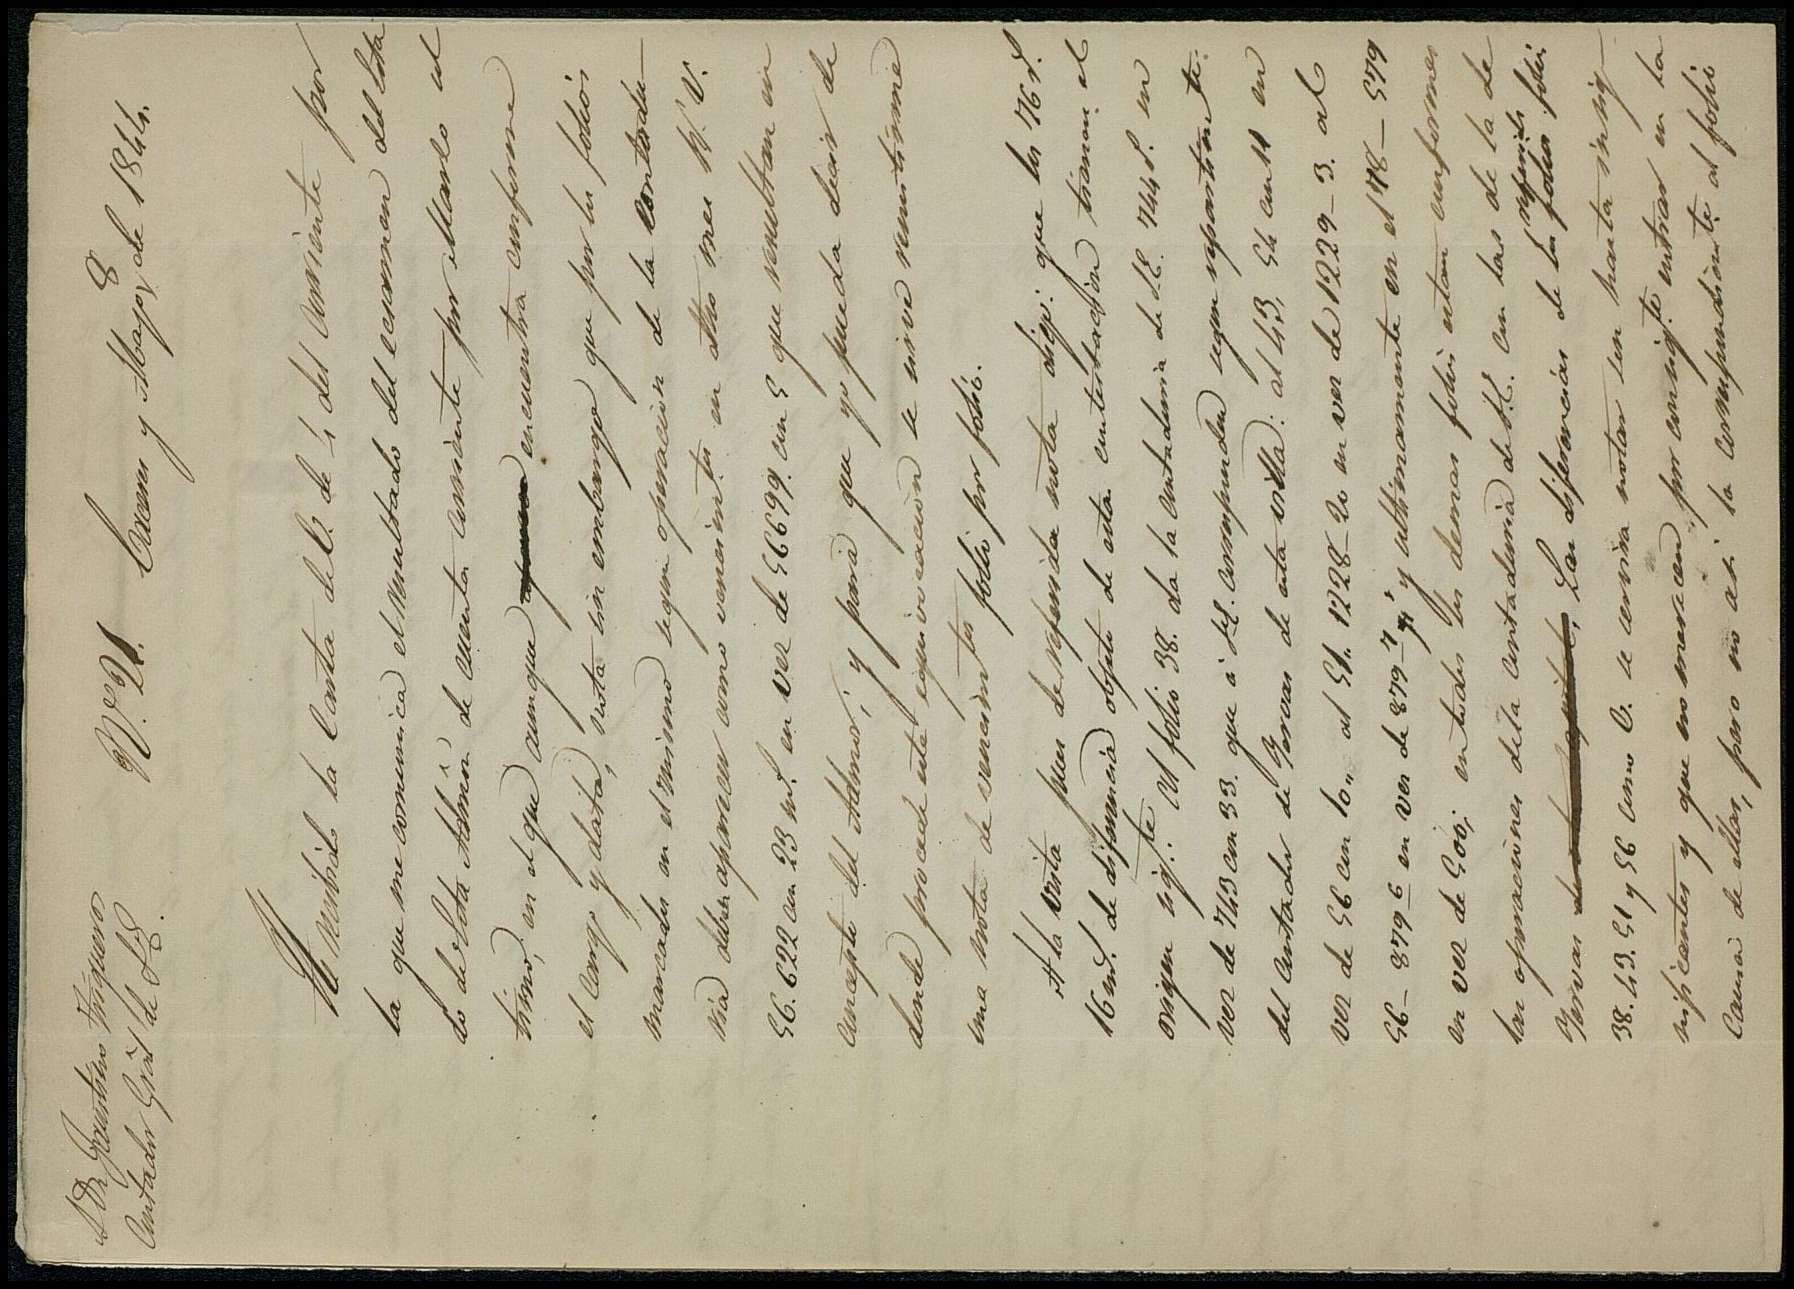 A Dn. Faustino Anguero
Contador Gral de S.E.
N.º 21. Coceus y Mayo 8 de 1844.
He recibido la Carta de V. de 4 del corriente por
la que me comunica el resultado del examen del esta
do de esta Admon de cuenta corriente por Marzo ul
timo, en el que aunque encuentra conforme
el cargo y data, nota sin embargo que por los folios
marcados en el mismo segun operacion de la Contadu
ria deben aparecer como vencimtos en dho mes R.s V.
56.622 con 23 mrs. en vez de 56699. con 5 que resultan en
concepto del Admor; y para que yo pueda decir de
donde procede esta equivocacion se sirve remitirme
una nota de vencimtos folio por folio.
A la vista pues de referida nota dije: que los 76 r.s
16 mrs. de diferencia objeto de esta contestacion tienen el
origen sigte: Al folio 38. da la Contaduria de S.E. 744 r.s en
vez de 743 con 33. que á S.E. corresponden segun repartimto.
del Contador de Yervas de esta villa: al 43, 54 con 11 en
vez de 56 con 10,, al 51. 1228-20 en vez de 1229-3. al
56- 879-6 en vez de 879-7 y ultimamente en el 78- 579
en vez de 500; en todos los demas folios estan conformes
las operaciones de la contaduria de S.E. con las de la de
Yervas Las diferencias de los referidos folios
38. 43. 51 y 56 como V. se servira notar son hasta insig
nificantes y que no merecen por consigte entrar en la
causa de ellas, pero no asi la correspondiente al folio